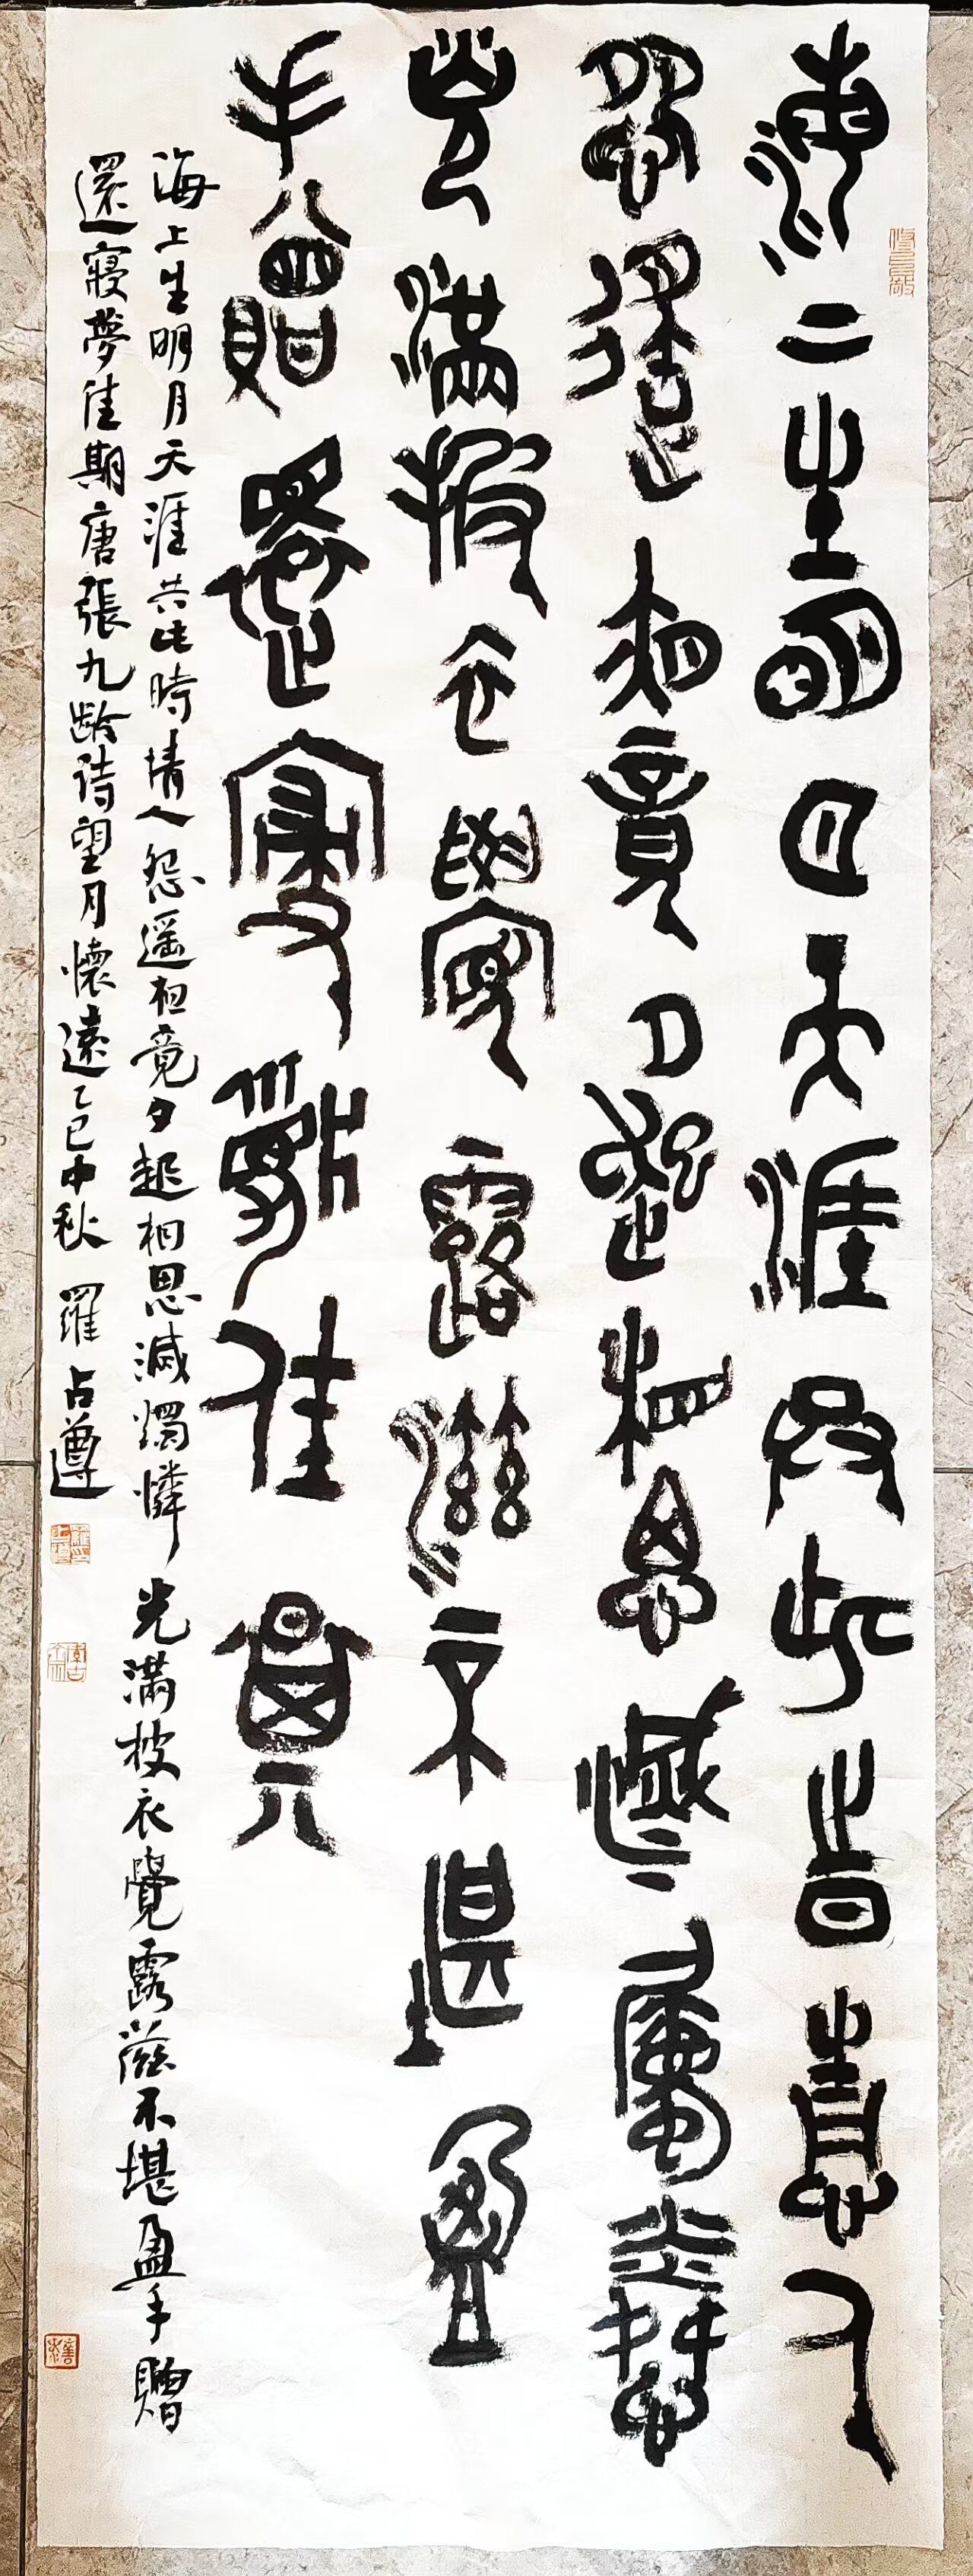 海上生明月天涯共此時情人
怨遙相竟夕起相思滅燭憐
光滿披衣覺露滋不堪盈
手贈還寢夢佳期
海上生明月天涯共此時情人怨遥相竟夕起相思滅燭憐光滿披衣覺露滋不堪盈手贈
還寢夢佳期唐張九齡诗望月懷遠乙巳中秋 羅占遵